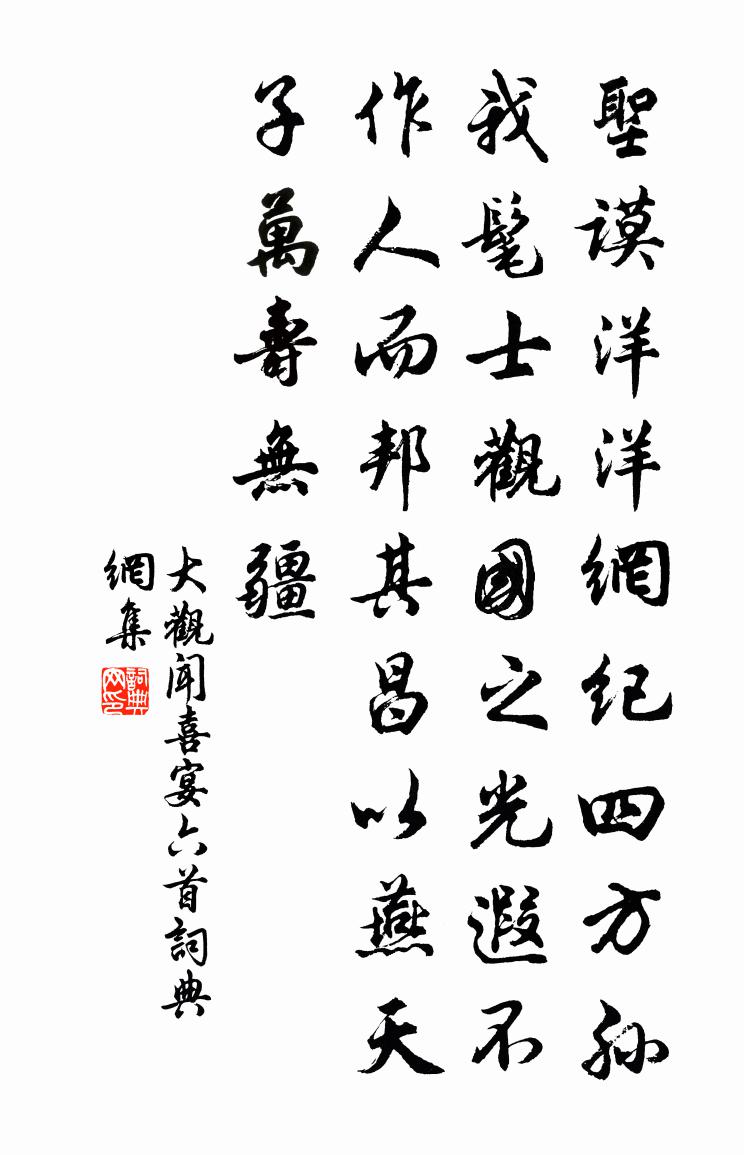 聖謨洋洋網紀四方孫
我髦士觀國之光遐不
作人而邦其昌以燕天
子萬壽無疆
大觀聞喜宴六首詞典
網集
詞典
网印